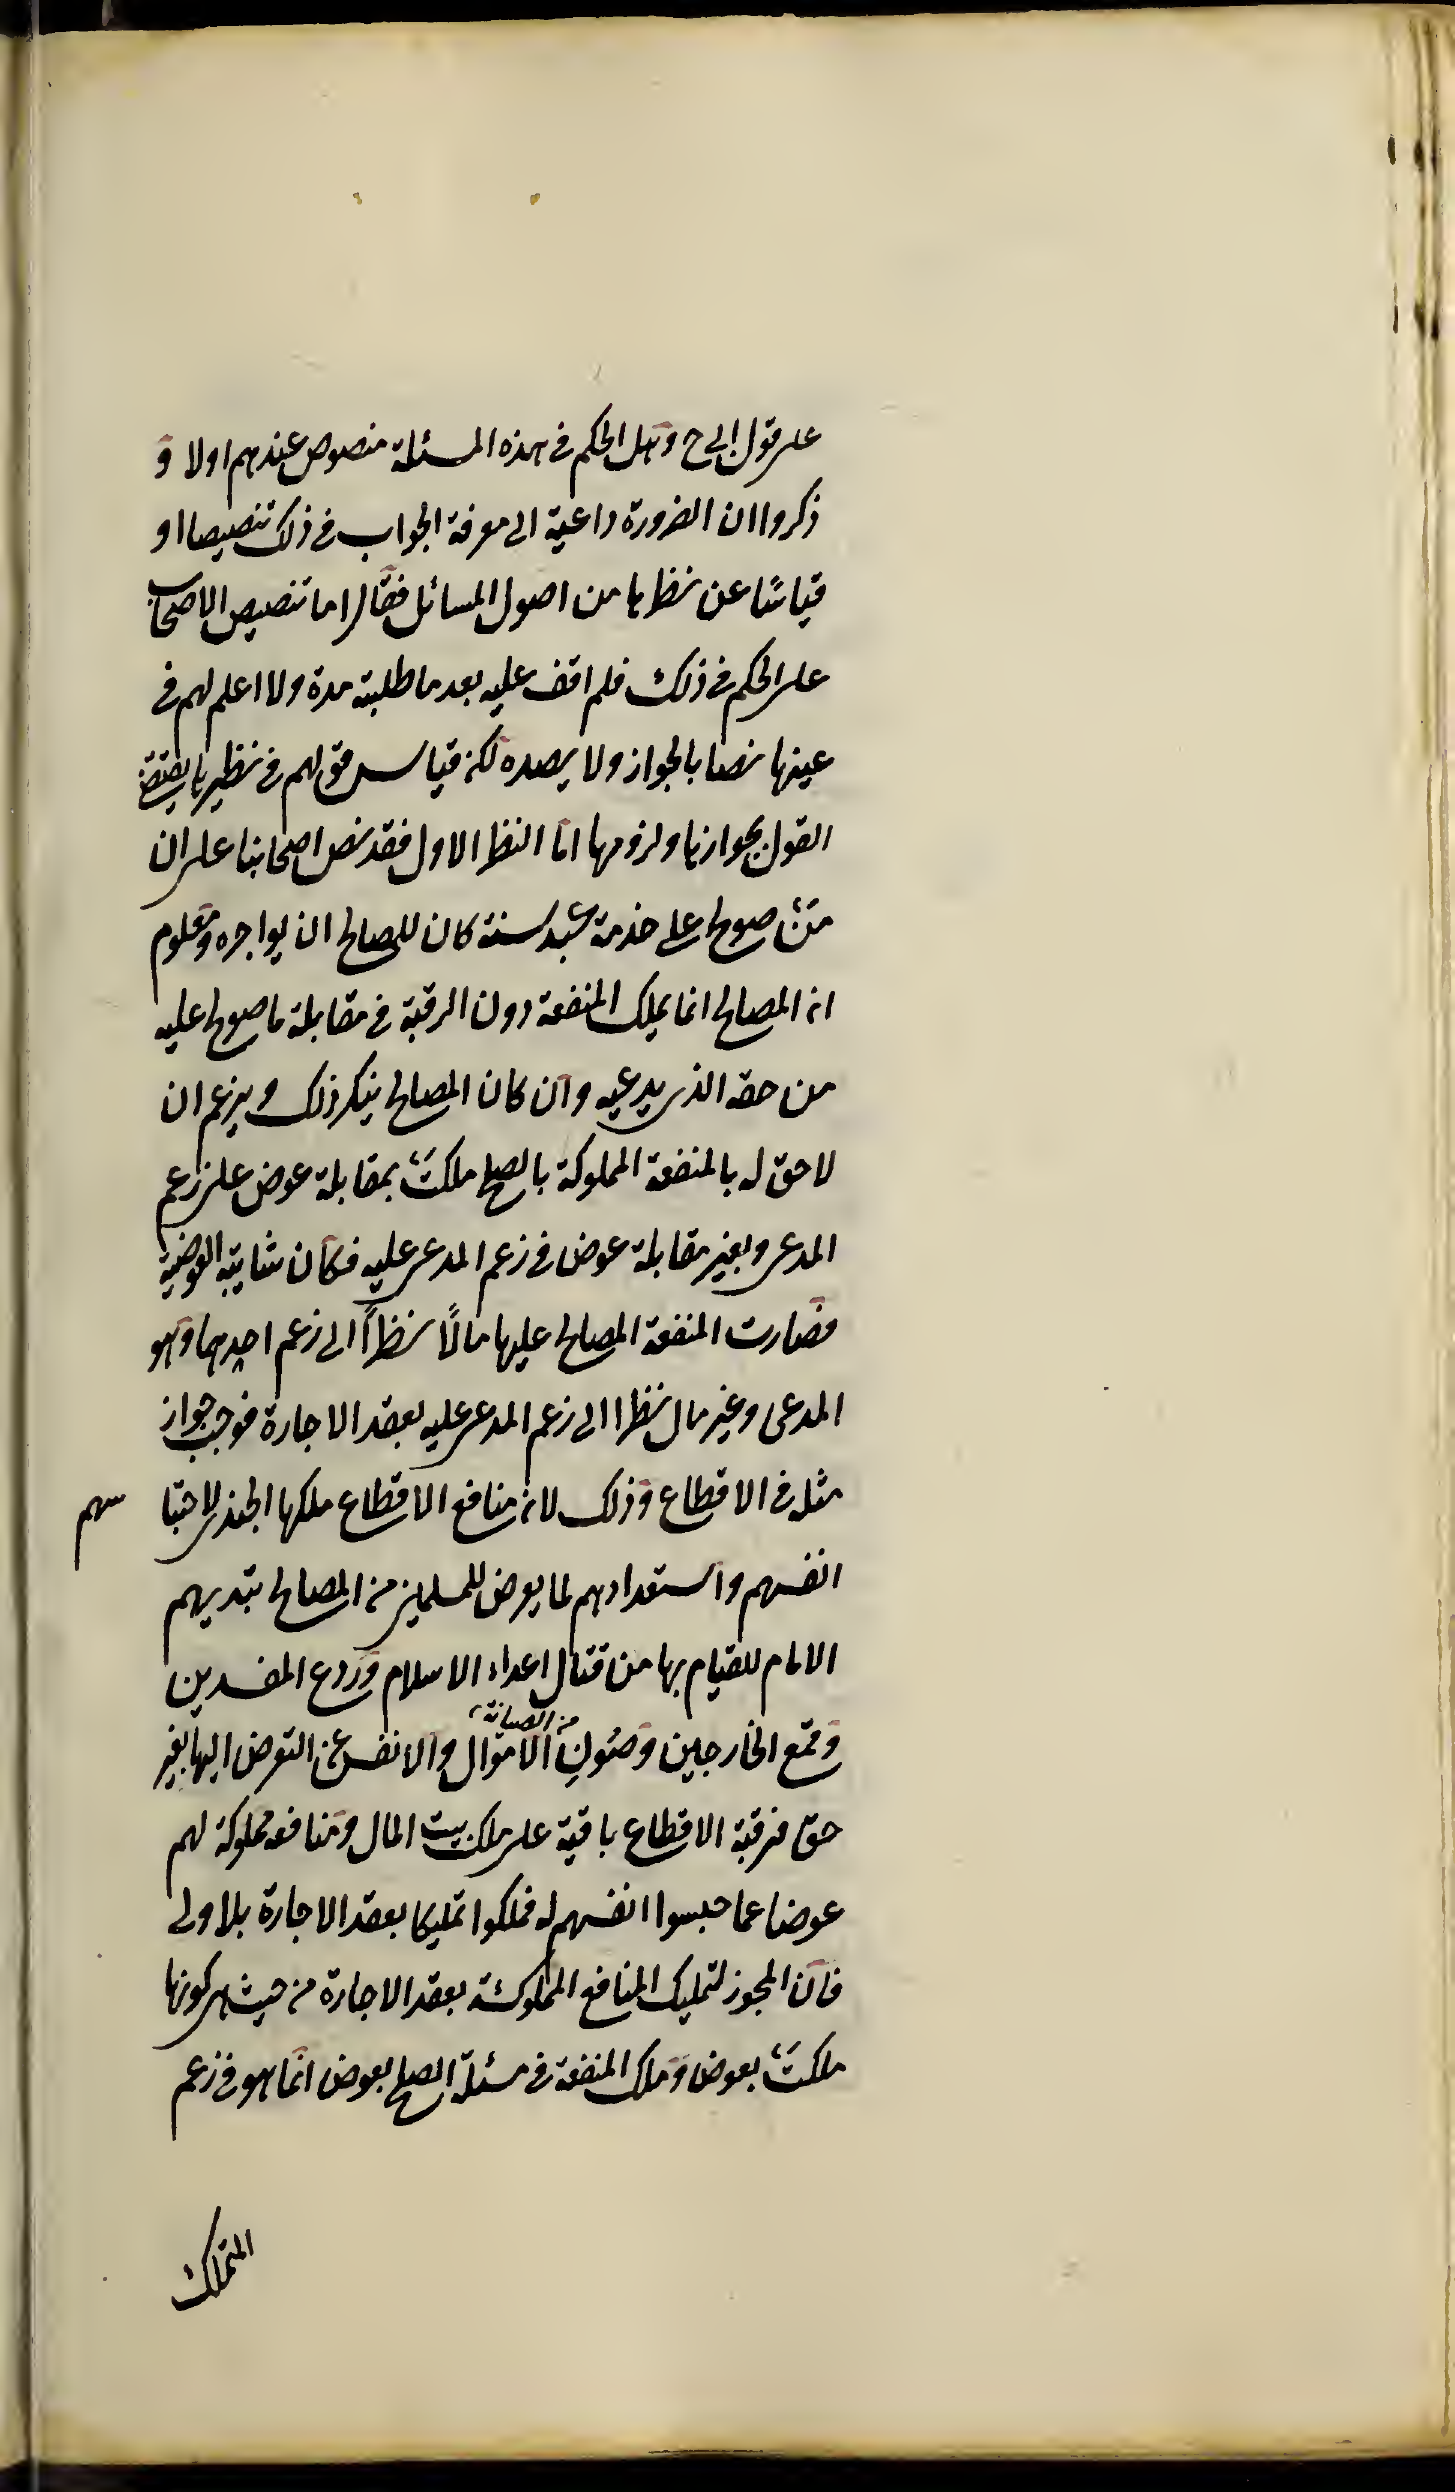 على قول ابى ح وهل الحكم فى هذه المسئلة منصوص عندهم اولا و
ذكروا ان الضرورة داعية الى معرفة الجواب فى ذلك تنصيصا او
قياسًا عن نظرها من اصول المسائل فقال اما تنصيص الاصحاب
على الحكم فى ذلك فلم اقف عليه بعد ما طلبته مدة ولا اعلم لهم فى
عينها نصا بالجواز ولا بصده لكن قياس قولهم فى نظيرها يقتضى
القول بجوازها ولزومها امّا النظر الاول فقد نص اصحابنا على ان
من صولح على خدمة عبد سنة كان للمصالح ان يواجره ومعلوم
ان المصالح انما يملك المنفعة دون الرقبة فى مقابلة ما صولح عليه
من حقه الذى يدعيه وان كان المصالح ينكر ذلك ويزعم ان
لا حق له بالمنفعة المملوكة بالصلح ملكت بمقابلة عوض على زعم
المدعى وبغير مقابلة عوض فى زعم المدعى عليه فكان شايبة العوضية
فصارت المنفعة المصالح عليها مالًا نظرًا الى زعم احدهما وهو
المدعى وغير مال نظرا الى زعم المدعى عليه بعقد الاجارة فوجب جواز
مثله فى الاقطاع وذلك لان منافع الاقطاع ملكها الجندى لاحتبا سهم
انفسهم واستعدادهم لما يعرض للمسلمين من المصالح بتدبيرهم
الامام للقيام بها من قتال اعداء الاسلام وردع المفسدين
وقمع الخارجين وصون الاموال والانفس عن التعرض اليها بغير
من الصيانة
حق فرقبة الاقطاع باقية على ملك بيت المال ومنافعه مملوكة لهم
عوضا عما حبسوا انفسهم له فملكوا تمليكا بعقد الاجارة بلا اولى
فان المجوز لتمليك المنافع المملوكة بعقد الاجارة من حيث هى كونها
ملكت بعوض وملك المنفعة فى مسئلة الصلح بعوض انما هو فى زعم
المتملك